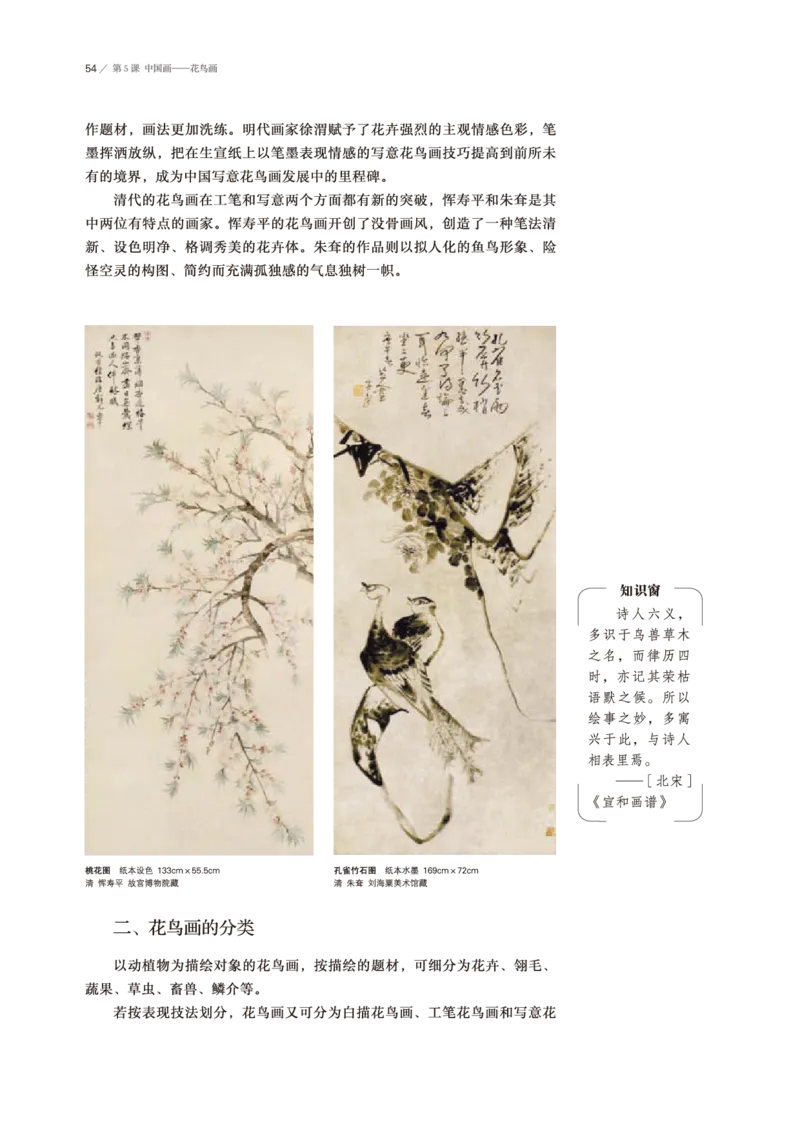 54 / 第5课 中国画——花鸟画
作题材，画法更加洗练。明代画家徐渭赋予了花卉强烈的主观情感色彩，笔
墨挥洒放纵，把在生宣纸上以笔墨表现情感的写意花鸟画技巧提高到前所未
有的境界，成为中国写意花鸟画发展中的里程碑。
清代的花鸟画在工笔和写意两个方面都有新的突破，恽寿平和朱耷是其
中两位有特点的画家。恽寿平的花鸟画开创了没骨画风，创造了一种笔法清
新、设色明净、格调秀美的花卉体。朱耷的作品则以拟人化的鱼鸟形象、险
怪空灵的构图、简约而充满孤独感的气息独树一帜。
孔雀名花雨
竹屏竹梢
强半墨生成
如何了得论
三耳恰是逢春
坐二更
知识窗
诗人六义，
多识于鸟兽草木
之名，而律历四
时，亦记其荣枯
语默之候。所以
绘事之妙，多寓
兴于此，与诗人
相表里焉。
——［北宋］
《宣和画谱》
桃花图 纸本设色 133cm×55.5cm
清 恽寿平 故宫博物院藏
孔雀竹石图 纸本水墨 169cm×72cm
清 朱耷 刘海粟美术馆藏
二、花鸟画的分类
以动植物为描绘对象的花鸟画，按描绘的题材，可细分为花卉、翎毛、
蔬果、草虫、畜兽、鳞介等。
若按表现技法划分，花鸟画又可分为白描花鸟画、工笔花鸟画和写意花